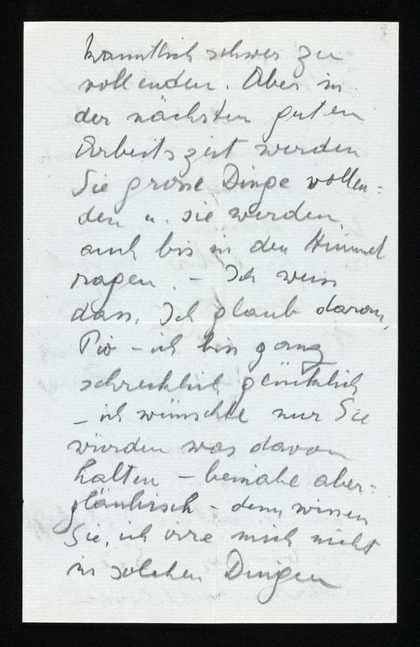 kanntlich schwer zu
vollenden. Aber in
der nächsten guten
Arbeitszeit werden
Sie grosse Dinge vollen=
den u. sie werden
auch bis in den Himmel
ragen. – Ich weiss
dass, Ich glaub daran,
– ich bin ganz
schrecklich glücklich
– ich wünschte nur Sie
würden was davon
halten – beinahe aber=
gläubisch – denn wissen
Sie, ich irre mich nicht
in solchen Dingen